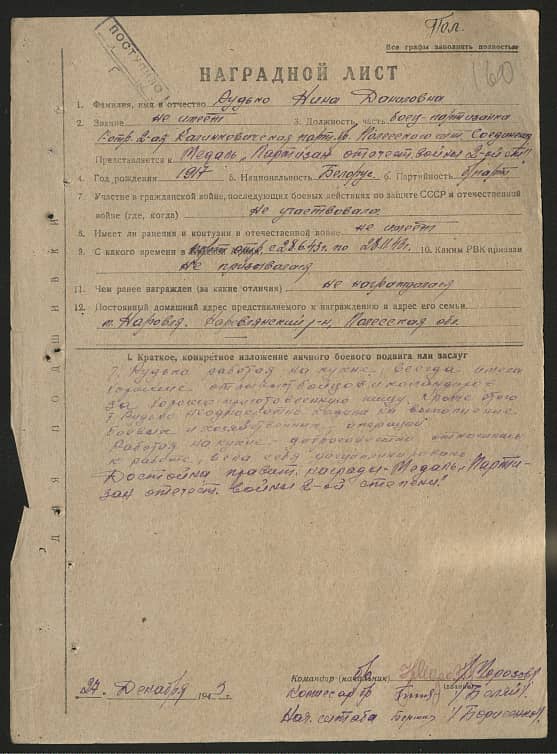 Пол.
Все графы заполнять полностью
ПОСТУПИЛО
160
НАГРАДНОЙ ЛИСТ
1. Фамилия, имя и отчество Рудько Нина Даниловна
2. Звание не имеет 3. Должность, часть боец-партизанка
1 отр. 2-ая Калинковичская парт. бр. Полесского соединен.
Представляется к Медаль „Партизан отечеств. войны 2-ой ст."
4. Год рождения 1917 5. Национальность Белорус. 6. Партийность б/парт
7. Участие в гражданской войне, последующих боевых действиях по защите СССР и отечественной
войне (где, когда) не участвовала
8. Имеет ли ранения и контузии в отечественной войне не имеет
9. С какого времени в с 28.6.43г. по 28.11.43г. 10. Каким РВК призван
не призывалася
11. Чем ранее награжден (за какие отличия) не награждалася
12. Постоянный домашний адрес представляемого к награждению и адрес его семьи
м. Наровля, Наровлянский р-н, Полесская обл.
I. Краткое, конкретное изложение личного боевого подвига или заслуг
Т. Рудько работая на кухне, всегда имела
хорошие бойцов и командиров
за хорошо приготовленную пищу. Кроме этого
т. Рудько неоднократно ходила на выполнение
боевых и хозяйственных операций.
Работая на кухне - добросовестно относилась
к работе, вела себя дисциплинировано
Достойна правит. награды - Медаль „Парти-
зан отечест. войны 2-ой степени."
Для подшивки
Командир (начальник) бр. /Морозов/
(звание)
27 Декабря 1943.
Комиссар бр.
Нач. штаба /Борисенко/